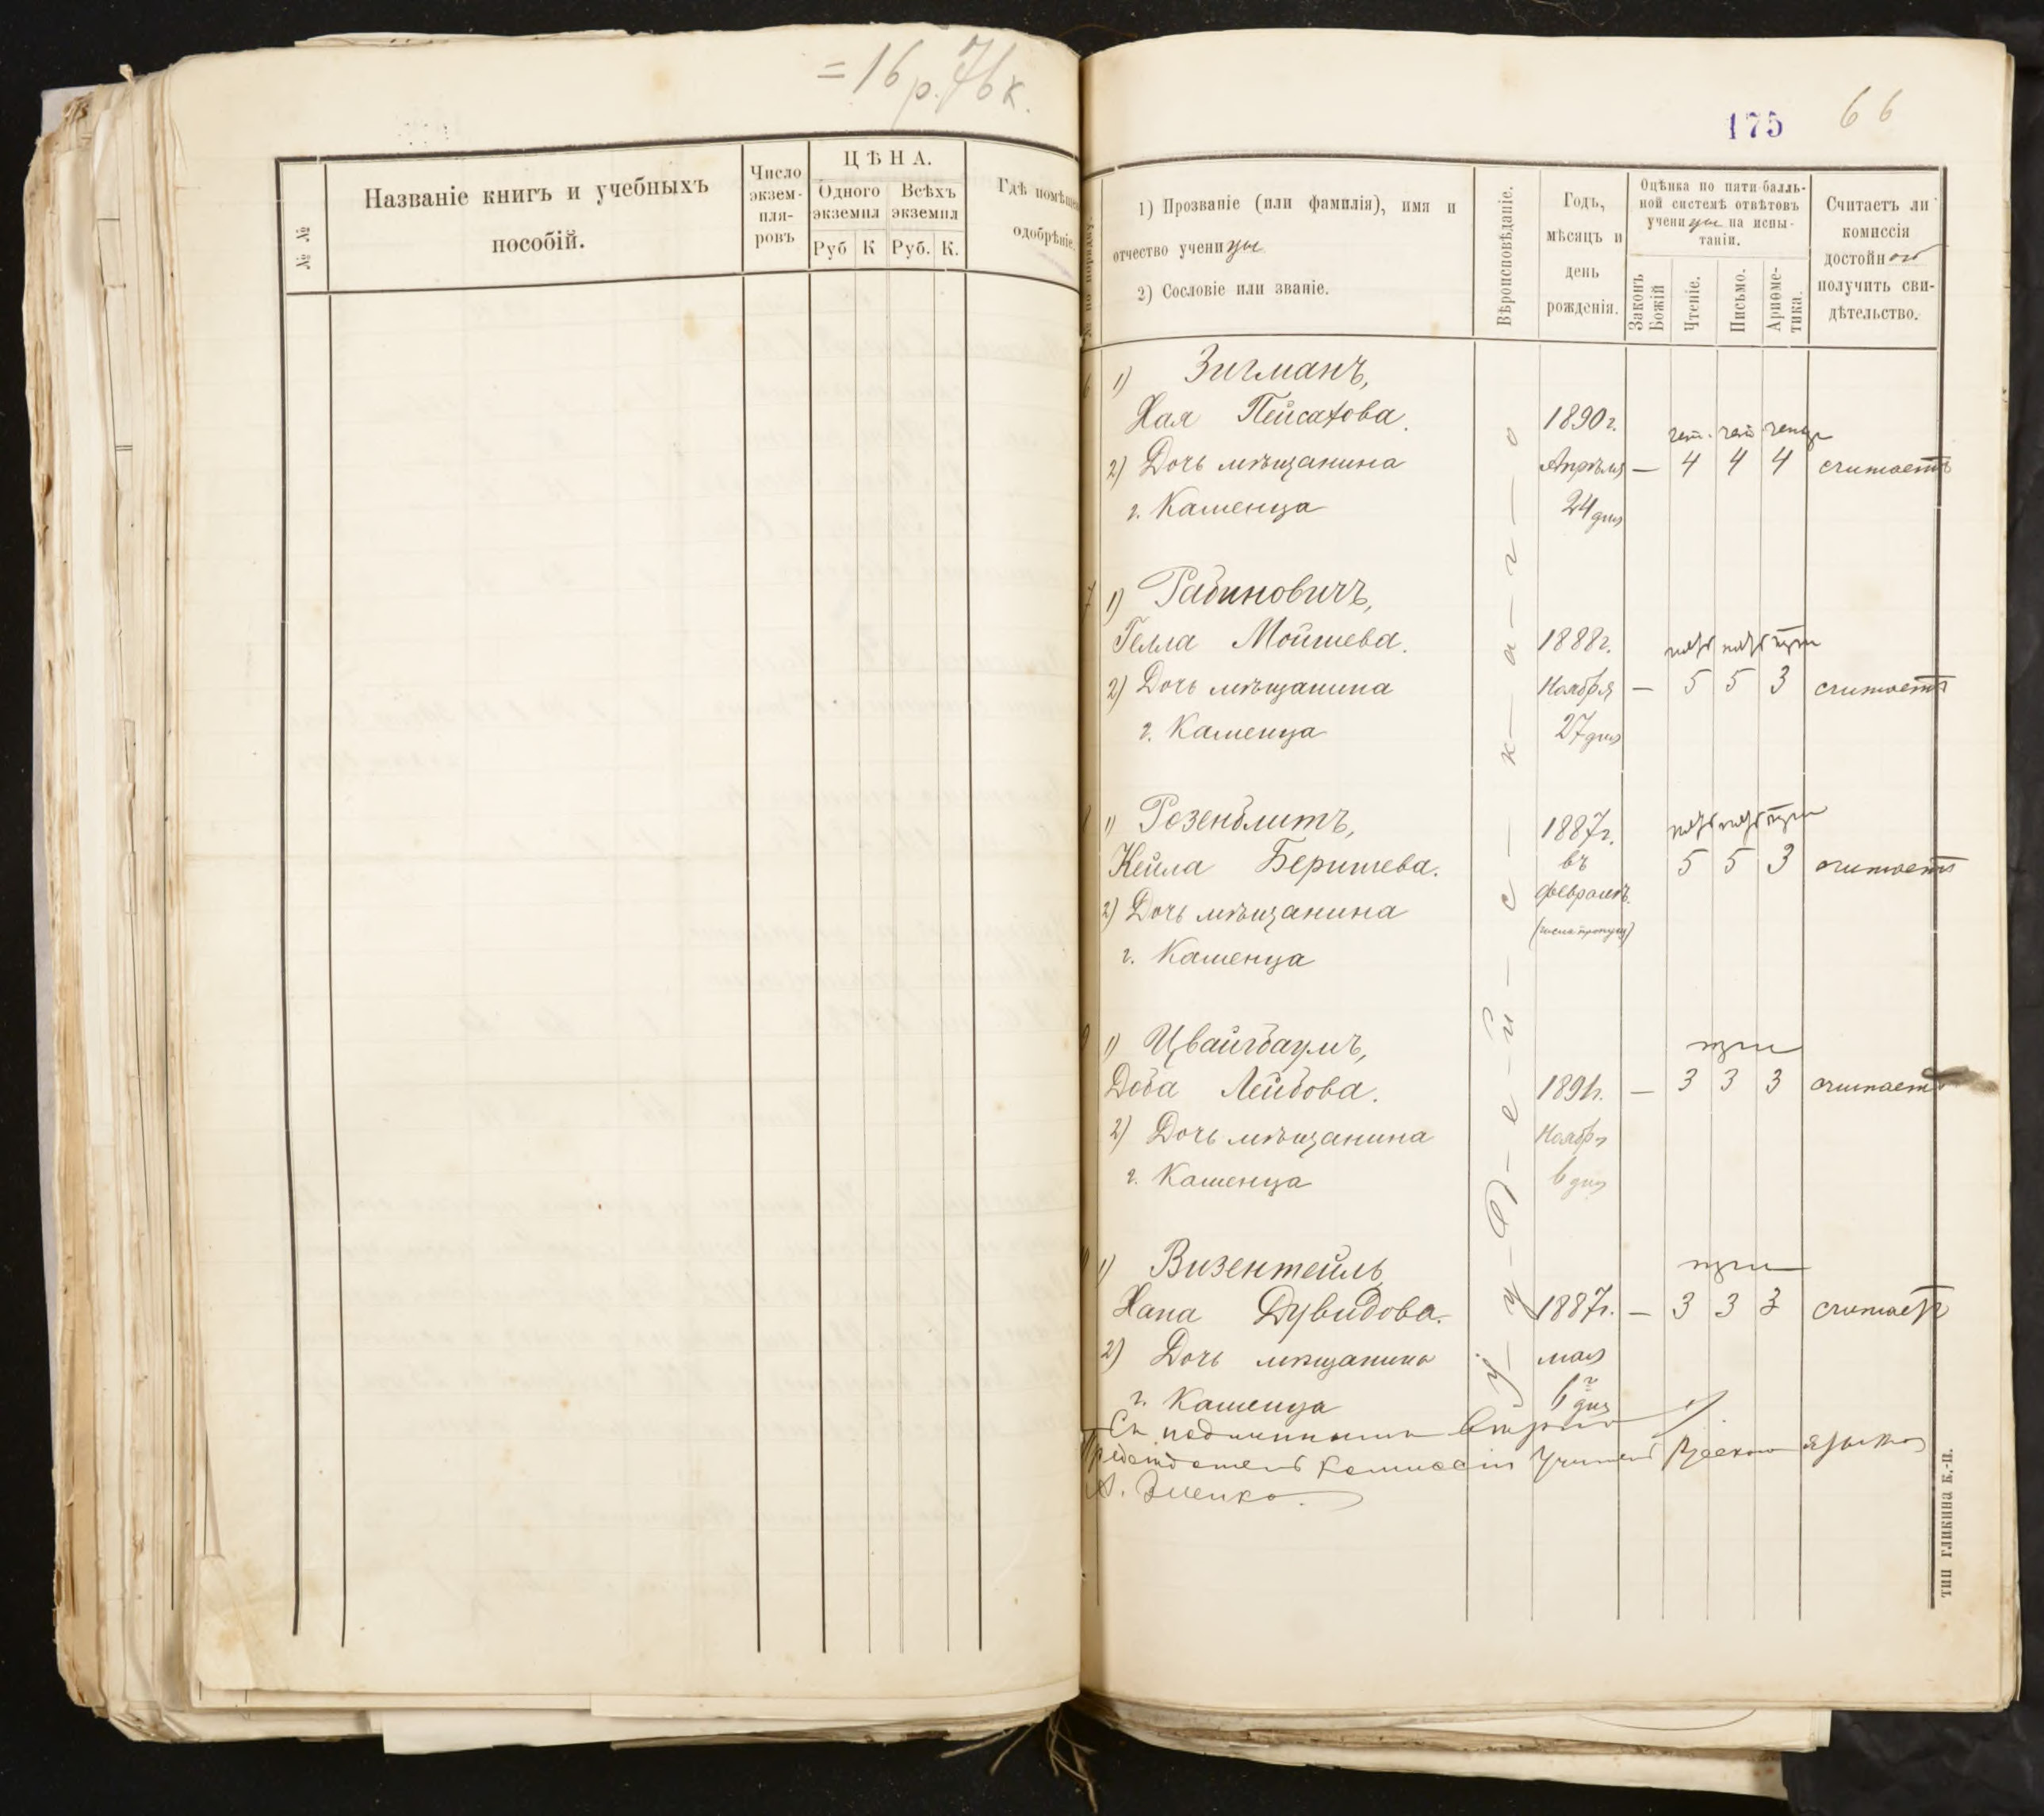 =16 р. 76 к.
№ №
Названіе книгъ и учебныхъ
пособій.
Число
экзем-
пля-
ровъ
ЦѢНА.
Одного
экземпл
Всѣхъ
экземпл
Руб К Руб. К.
Гдѣ
одобрѣніе.
175 66
1) Прозваніе (или фамилія), имя и
отчество ученицы
2) Сословіе или званіе.
Вѣроисповѣданіе.
Годъ,
мѣсяцъ и
день
рожденія.
Оцѣнка по пяти-балль-
ной системѣ отвѣтовъ
ученицы на испы-
таніи.
Законъ
Божій
Чтеніе.
Письмо.
Ариѳме-
тика.
Считаетъ ли
комиссія
достойн
получить сви-
дѣтельство.
і-у-д-е-й-с-к-а-г-о
6 1) Зигманъ,
Хая Пейсахова. 1890 г.
2) Дочь мѣщанина Апрѣля — 4 4 4 считаетъ
г. Каменца 24 дня
7 1) Рабиновичъ,
Гелла Мошева. 1888 г.
2) Дочь мѣщанина Ноября — 5 5 3 считаетъ
г. Каменца 27 дня
8 1) Розенблитъ, 1887 г.
Кейла Беришева. въ 5 5 3 считаетъ
2) Дочь мѣщанина февралѣ.
г. Каменца
9 1) Цвайгбаумъ, три
Доба Лейбова. 1891 г. — 3 3 3 считаетъ
2) Дочь мѣщанина Ноября
г. Каменца 6 дня
1) Визентейль три
Хана Дувидова. 1887 г. — 3 3 3 считаетъ
2) Дочь мѣщанина мая
г. Каменца 6 дня
Съ подлиннымъ вѣрно
Предсѣдатель комиссіи Учитель Русскаго языка
А.
ТИП ГЛИКИНА К.-П.